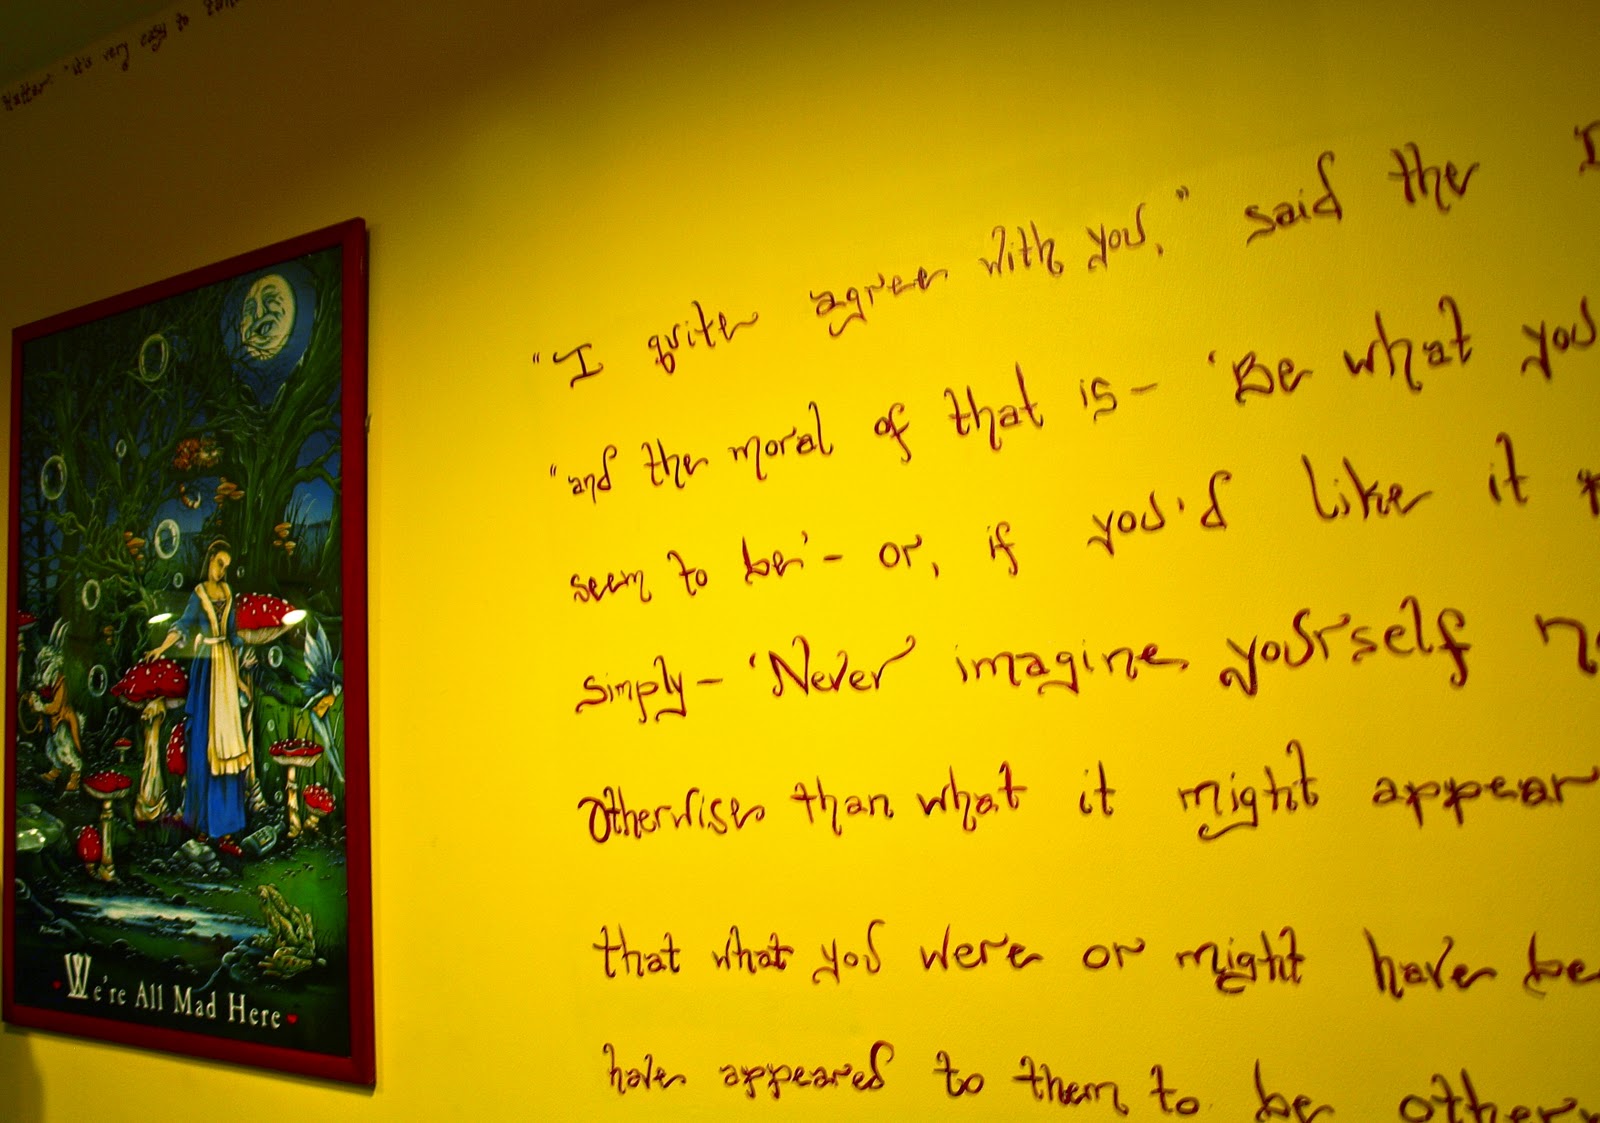 Hatter: "it's very easy to take
"I quite agree with you," said the D
"and the moral of that is — 'Be what you
seem to be' — or, if you'd like it
simply — 'Never imagine yourself no
otherwise than what it might appear
that what you were or might have be
have appeared to them to be otherw
We're All Mad Here